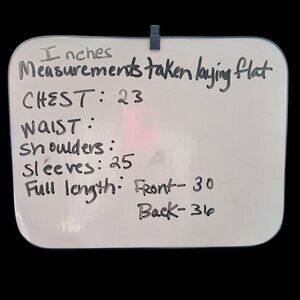 Inches
Measurements taken laying flat
CHEST: 23
WAIST:
Shoulders:
Sleeves: 25
Full length: Front- 30
Back- 36